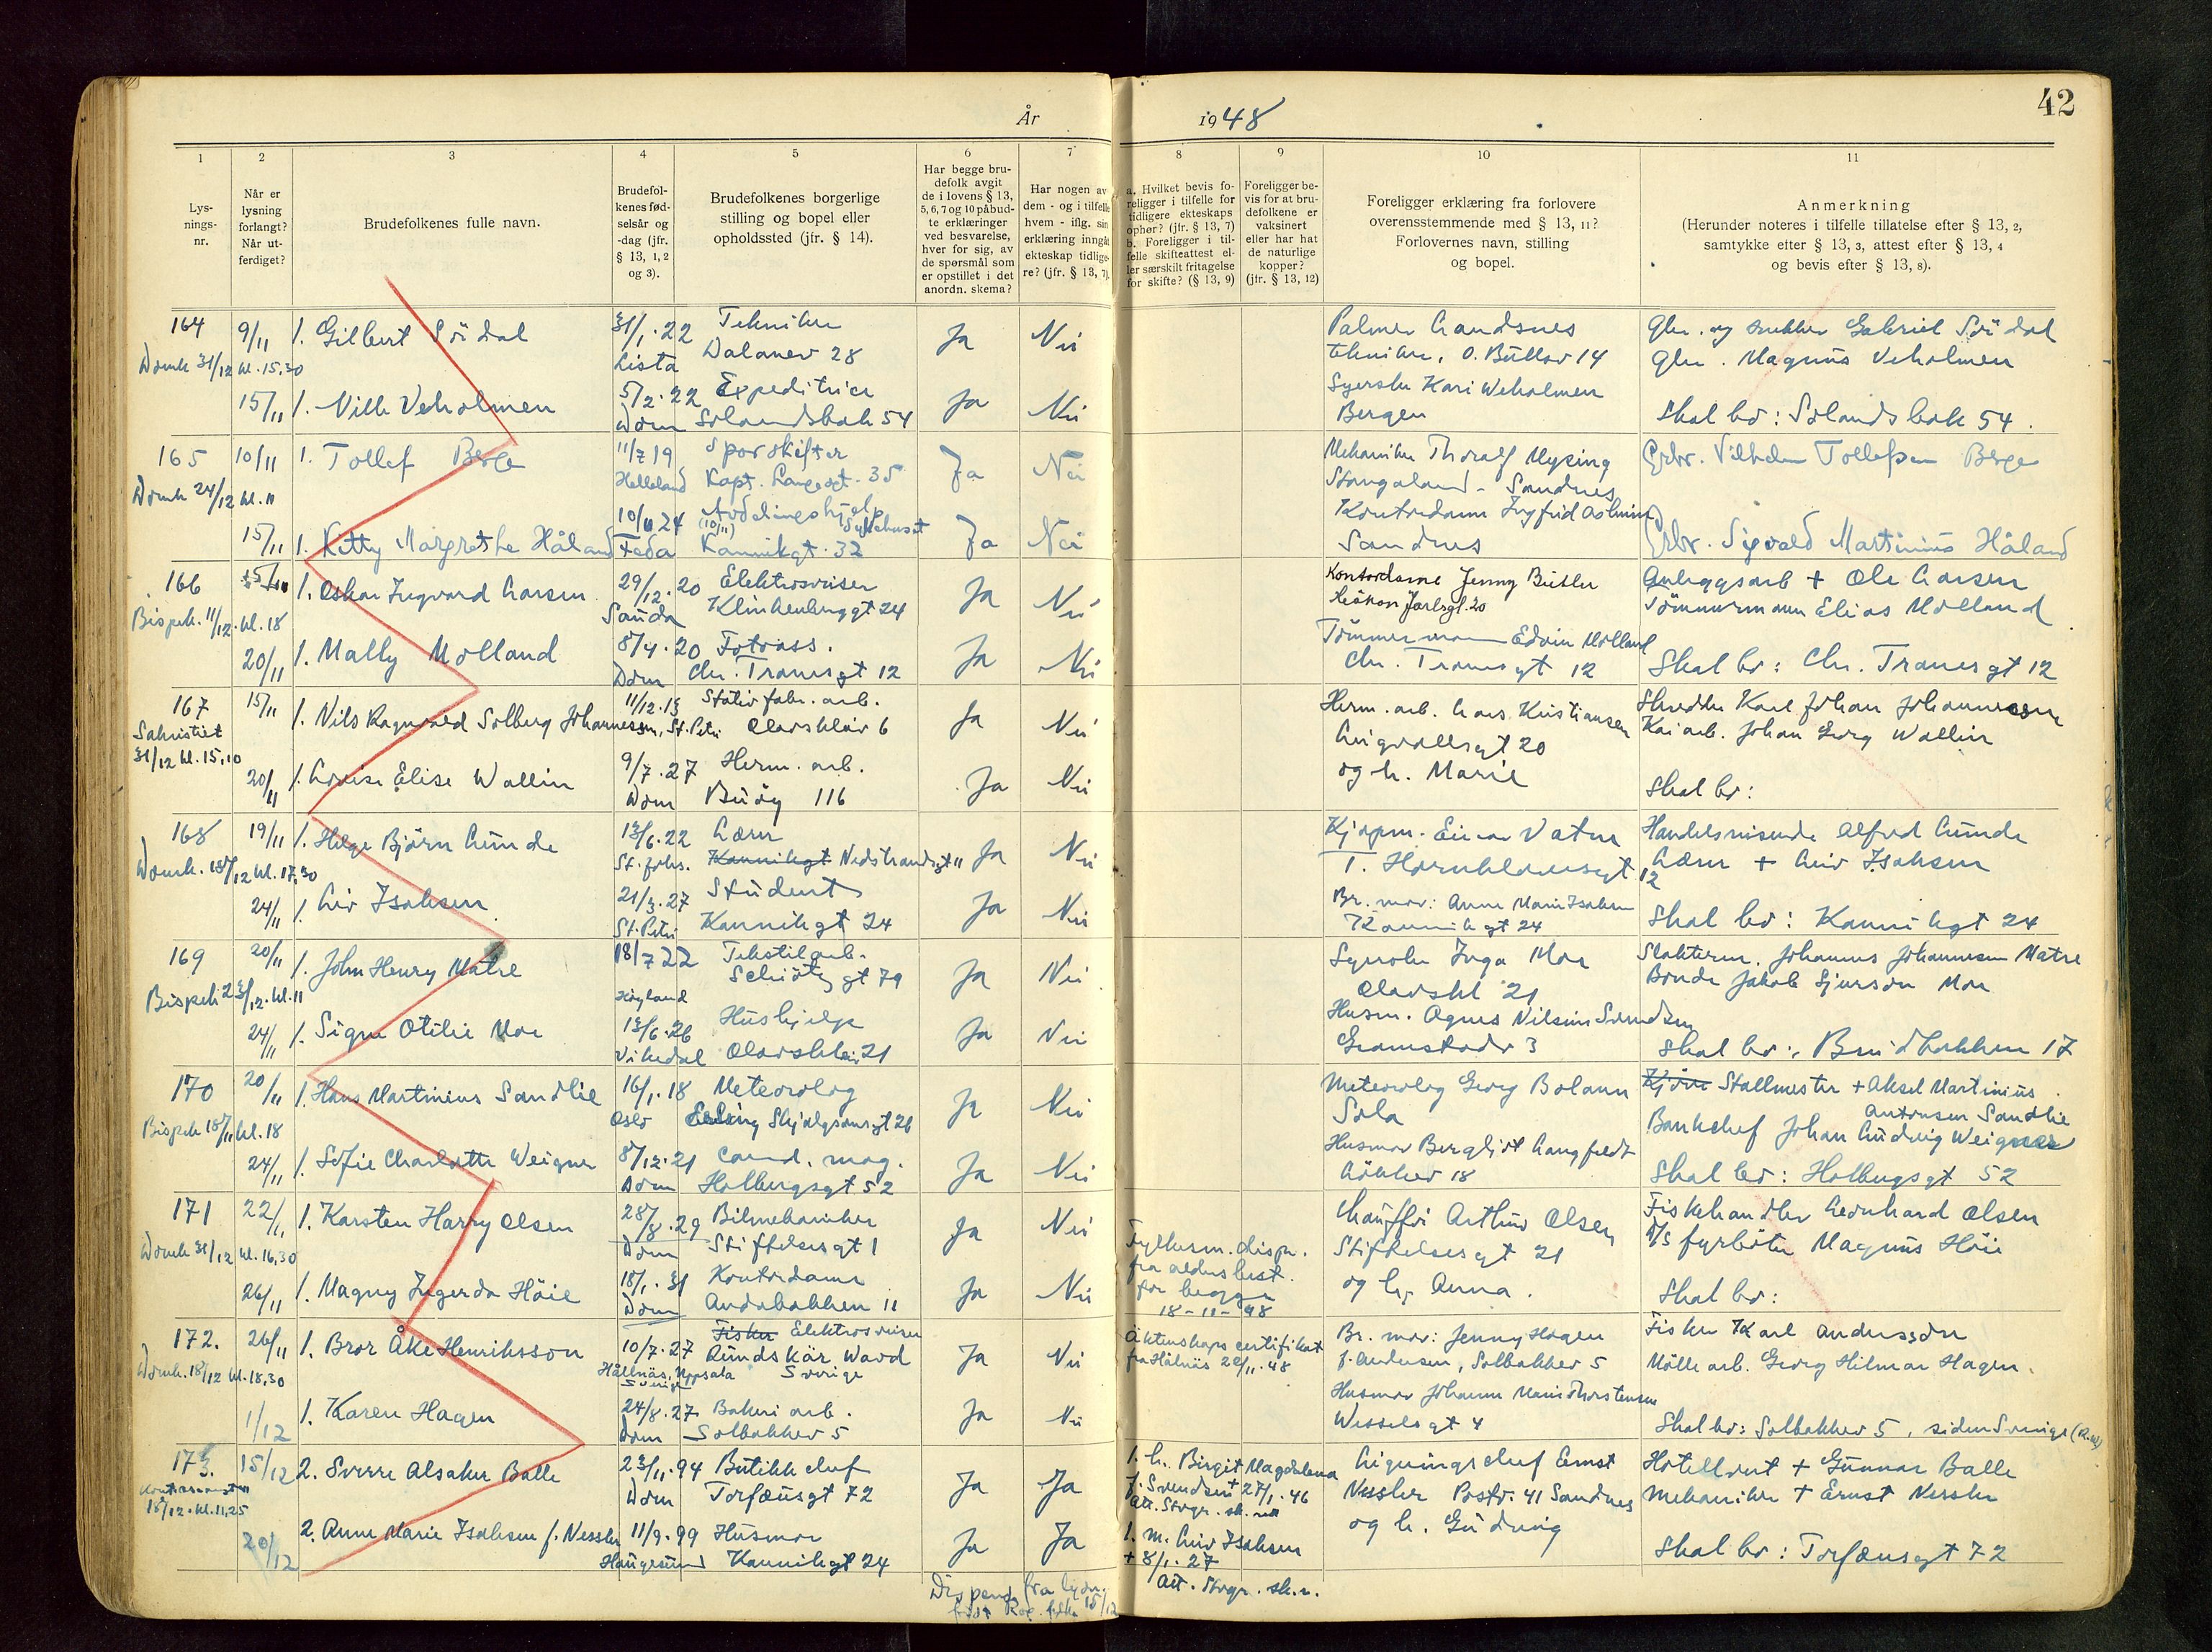 År 1948
42
1 2 3 4 5 6 7 8 9 10 11
Lys-
nings-
nr.
Når er
lysning
forlangt?
Når ut-
ferdiget?
Brudefolkenes fulle navn.
Brudefol-
kenes fød-
selsår og
-dag (jfr.
§ 13, 1, 2
og 3).
Brudefolkenes borgerlige
stilling og bopel eller
opholdssted (jfr. § 14).
Har begge bru-
defolk avgit
de i lovens § 13,
5, 6, 7 og 10 påbud-
te erklæringer
ved besvarelse,
hver for sig, av
de spørsmål som
er opstillet i det
anordn. skema?
Har nogen av
dem - og i tilfelle
hvem - iflg. sin
erklæring inngåt
ekteskap tidlige-
re? (jfr. § 13, 7).
a. Hvilket bevis fo-
religger i tilfelle for
tidligere ekteskaps
ophør? (jfr. § 13, 7)
b. Foreligger i til-
felle skifteattest el-
ler særskilt fritagelse
for skifte? (§ 13, 9)
Foreligger be-
vis for at bru-
defolkene er
vaksinert
eller har hat
de naturlige
kopper?
(jfr. § 13, 12)
Foreligger erklæring fra forlovere
overensstemmende med § 13, 11?
Forlovernes navn, stilling
og bopel.
Anmerkning
(Herunder noteres i tilfelle tillatelse efter § 13, 2,
samtykke efter § 13, 3, attest efter § 13, 4
og bevis efter § 13, 8).
164 9/11 1. Gilbert Sördal 31/1.22 Tekniker Ja Nei
Domk 31/12 kl. 15,30 Lista Dalaner 28
Palmer Gandsnes
tekniker, O. Bullsv 14
Gabriel Sördal
Magnus Veholmen
15/11 1. Nille Veholmen 5/2.22 Expeditrice Ja Nei
Dom Solandsbak 54
Syerske Kari Weholmen
Bergen
Skal bo: Solandsbak 54.
165 10/11 1. Tollef Berge 11/7 19 Sporskifter Ja Nei
Domk 24/12 kl. 11 Helleland Kapt. Langesgt. 35
Mekaniker Thoralf Mysing
Stangeland - Sandnes
Grbr. Vilhelm Tollefsen Berge
10/6 24 Avdelingshjelp
(10/11) Sykehuset
15/11 1. Kitty Margrethe Håland Feda Kannikgt. 32 Ja Nei
Kontordame Ingfrid
Sandnes
Grbr. Sigvald Martinius Håland
166 15/11 1. Oskar Ingvard Larsen 29/12.20 Elektroviser Ja Nei
Bispek. 11/12. kl. 18 Sauda Klinkenberggt 24
Kontordame Jenny Butler
Håkon Jarlsgt. 20
Anleggsarb + Ole Larsen
Tömmermann Elias Molland
20/11 1. Mally Molland 8/4.20 Fotoass. Ja Nei
Dom Chr. Tranesgt 12
Tömmermann Edvin Molland
Chr. Tranesgt 12
Skal bo: Chr. Tranesgt 12
167 15/11 1. Nils Ragnvald Solberg Johannessen, 11/12.13 Stativfabr. arb. Ja Nei
Sakristiet St. Petri Olavskleiv 6
31/12 kl. 15,10
Herm. arb. Lars Kristiansen
20
og h. Marie
Skredder Karl Johan Johannessen
Kaiarb. Johan Georg Wallin
20/11 1. Lovise Elise Wallin 9/7.27 Herm. arb. Ja Nei
Dom Buöy 116
Skal bo:
168 19/11 1. Helge Björn Lunde 13/6.22 Lærer Ja Nei
Domk. 18/12 kl. 17,30 St. Johs. Kannikgt Nedstrandsgt 11
Kjøpm. Einar Vatne
T. Hornklovesgt 12
Handelsreisende Alfred Lunde
Lærer + Leiv Isaksen
24/11 1. Liv Isaksen 21/3.27 Student Ja Nei
St. Petri Kannikgt 24
Br. mor: Anne Marie Isaksen
Kannikgt 24
Skal bo: Kannikgt 24
169 20/11 1. John Henry Matre 18/7 22 Tekstilarb. Ja Nei
Bispek 23/12. kl. 11 Høyland Schiøtzgt 79
Syerske Inga Moe
Olavskl 21
Slakterm. Johannes Johannesen Matre
Bonde Jakob Sjurson Moe
24/11 1. Signe Otilie Moe 13/6.26 Hushjelp Ja Nei
Vikedal Olavskleiv 21
Husm. Agnes Nilsine Svendsen
Gramstadv 3
Skal bo: Breidbakken 17
170 20/11 1. Hans Martinius Sandlie 16/1.18 Meteorolog Ja Nei
Bispek 18/11 kl. 18 Oslo Erling Skjalgsonsgt 26
Meteorolog Georg Bolann
Sola
Kjörn Stallmester + Aksel Martinius
Antonsen Sandlie
24/11 1. Sofie Charlotte Weigner 8/12.21 cand. mag. Ja Nei
Dom Holbergsgt 52
Husmor Bergljot Langfeldt
Lökkev 18
Bankchef Johan Ludvig Weigner
Skal bo: Holbergsgt 52
171 22/11 1. Karsten Harry Olsen 28/8.29 Bilmekaniker Ja Nei
Domk 31/12 kl. 16,30 Dom Stiftelsesgt 1
Fylkesm. disp.
fra aldersbest.
for begge
18-11-48
Chaufför Arthur Olsen
Stiftelsesgt 21
og h. Anna.
Fiskehandler Leonhard Olsen
D/S fyrböter Magnus Höie
26/11 1. Magny Ingerda Höie 18/1.31 Kontordame Ja Nei
Dom Andabakken 11
Skal bo:
172. 26/11 1. Bror Åke Henriksson 10/7.27 Fisker Elektrosveiser Ja Nei
Domk. 18/12 kl. 18,30 Hållnäs, Uppsala Rundskär, Sverige
Sverige
Äktenskapscertifikat
fra Hållnäs 22/11.48
Br. mor: Jenny Hagen
f. Andersen, Solbakkev 5
Fisker Karl Andersson
Mölle arb. Georg Hilmar Hagen.
1/12 1. Karen Hagen 24/8.27 Bakeri arb. Ja Nei
Dom Solbakkev 5
Husmor Johanne Marie Thorstensen
Wesselsgt 4
Skal bo: Solbakkev 5, siden Sverige
173. 15/12 2. Sverre Alsaker Balle 23/11.94 Butikk chef Ja Ja
18/12. kl. 11,25 Dom Torfæusgt 72
1. h. Birgit Magdalena
f. Svendsen + 27/1.46
Att. Stvgr. sk. ret
Ligningschef Ernst
Nessler Postv. 41 Sandnes
og h. Gudveig
Hotellvert + Gunnar Balle
Mekaniker + Ernst Nessler
20/12 2. Anne Marie Isaksen f. Nessler 11/9.99 Husmor Ja Ja
Haugesund Kannikgt 24
1. m. Leiv Isaksen
+ 8/1.27
Att. Stvgr. sk. r.
Skal bo: Torfæusgt 72
Dispens. fra lysn.
15/12